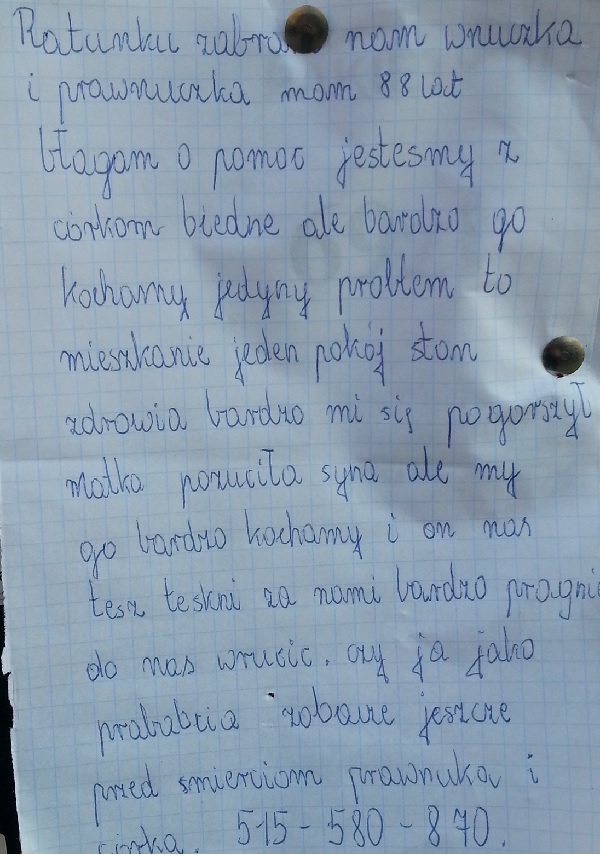 Ratunku zabra nam wnuczka
i prawnuczka mam 88 lat
błagam o pomoc jestesmy z
córkom biedne ale bardzo go
kochamy jedyny problem to
mieszkanie jeden pokój stan
zdrowia bardzo mi się pogorszył
matka pozuciła syna ale my
go bardzo kochamy i on nas
tesz teskni za nami bardzo pragnie
do nas wrucic. czy ja jako
prababcia zobacze jeszcze
przed smierciom prawnuka i
córka. 515-580-870.